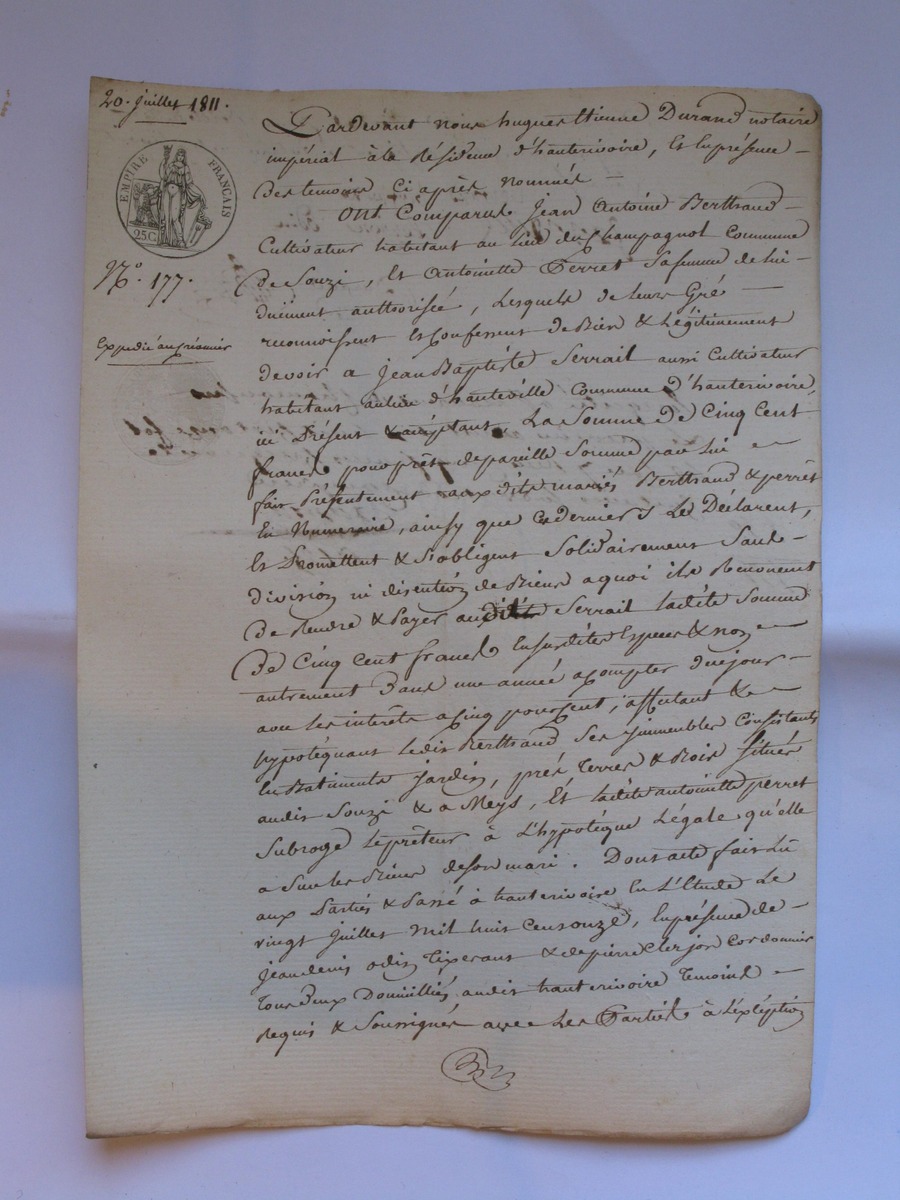 20. Juillet 1811.
EMPIRE FRANÇAIS
25C.
N.° 177.
Expedié au créancier
Pardevant nous hugues Etienne Durand notaire
impérial à la Résidence d'hauterivoire, Et En présence
Des temoins Ci après nommés
Ont Comparus Jean Antoine Berthaud
Cultivateur habitant au lieu du Champagnol Commune
De Souzi, Et Antoinette Perret Sa femme de lui
duëment authorisée, Lesquels de leurs Gré
reconnoissent Et Confessent de Bien & Légitimement
devoir a Jean Baptiste Serrail aussi Cultivateur
habitant au lieu d'hauteville Commune d'hauterivoire,
ici Présent & acceptant, La Somme De Cinq Cent
francs pour prêt de pareille Somme par lui
fait Présentement aux dits mariés Berthaud & perret
En Numeraire, ainsy que Ces derniers Le Déclarent,
Et Promettent & S'obligent Solidairement Sans
division ni discution de Biens a quoi ils Renoncent
De Rendre & Payer au dit Serrail ladite Somme
De Cinq Cent francs En Susdites Especes & non
autrement Dans une année a Compter du Ce jour
avec les interêts a Cinq pour Cent, affectant &
hypotéquant ledit Berthaud Ses Immeubles Consistants
En Batiments Jardin, prés Terres & Bois Situés
audit Souzi & a Meys, Et ladite antoinette perret
Subroge Le prêteur à L'hypotéque Légale qu'elle
a Sur les Biens de Son mari. Dont acte fait Lû
aux Parties & Passé à hauterivoire En L'Etude Le
vingt Juillet mil huit Cent onze, En présence de
Jean denis odin Tixerant & de pierre Clerjon Cordonnier
Tous Deux Domiciliés audit hauterivoire Temoins
Requis & Soussignés avec Les Parties à L'exception